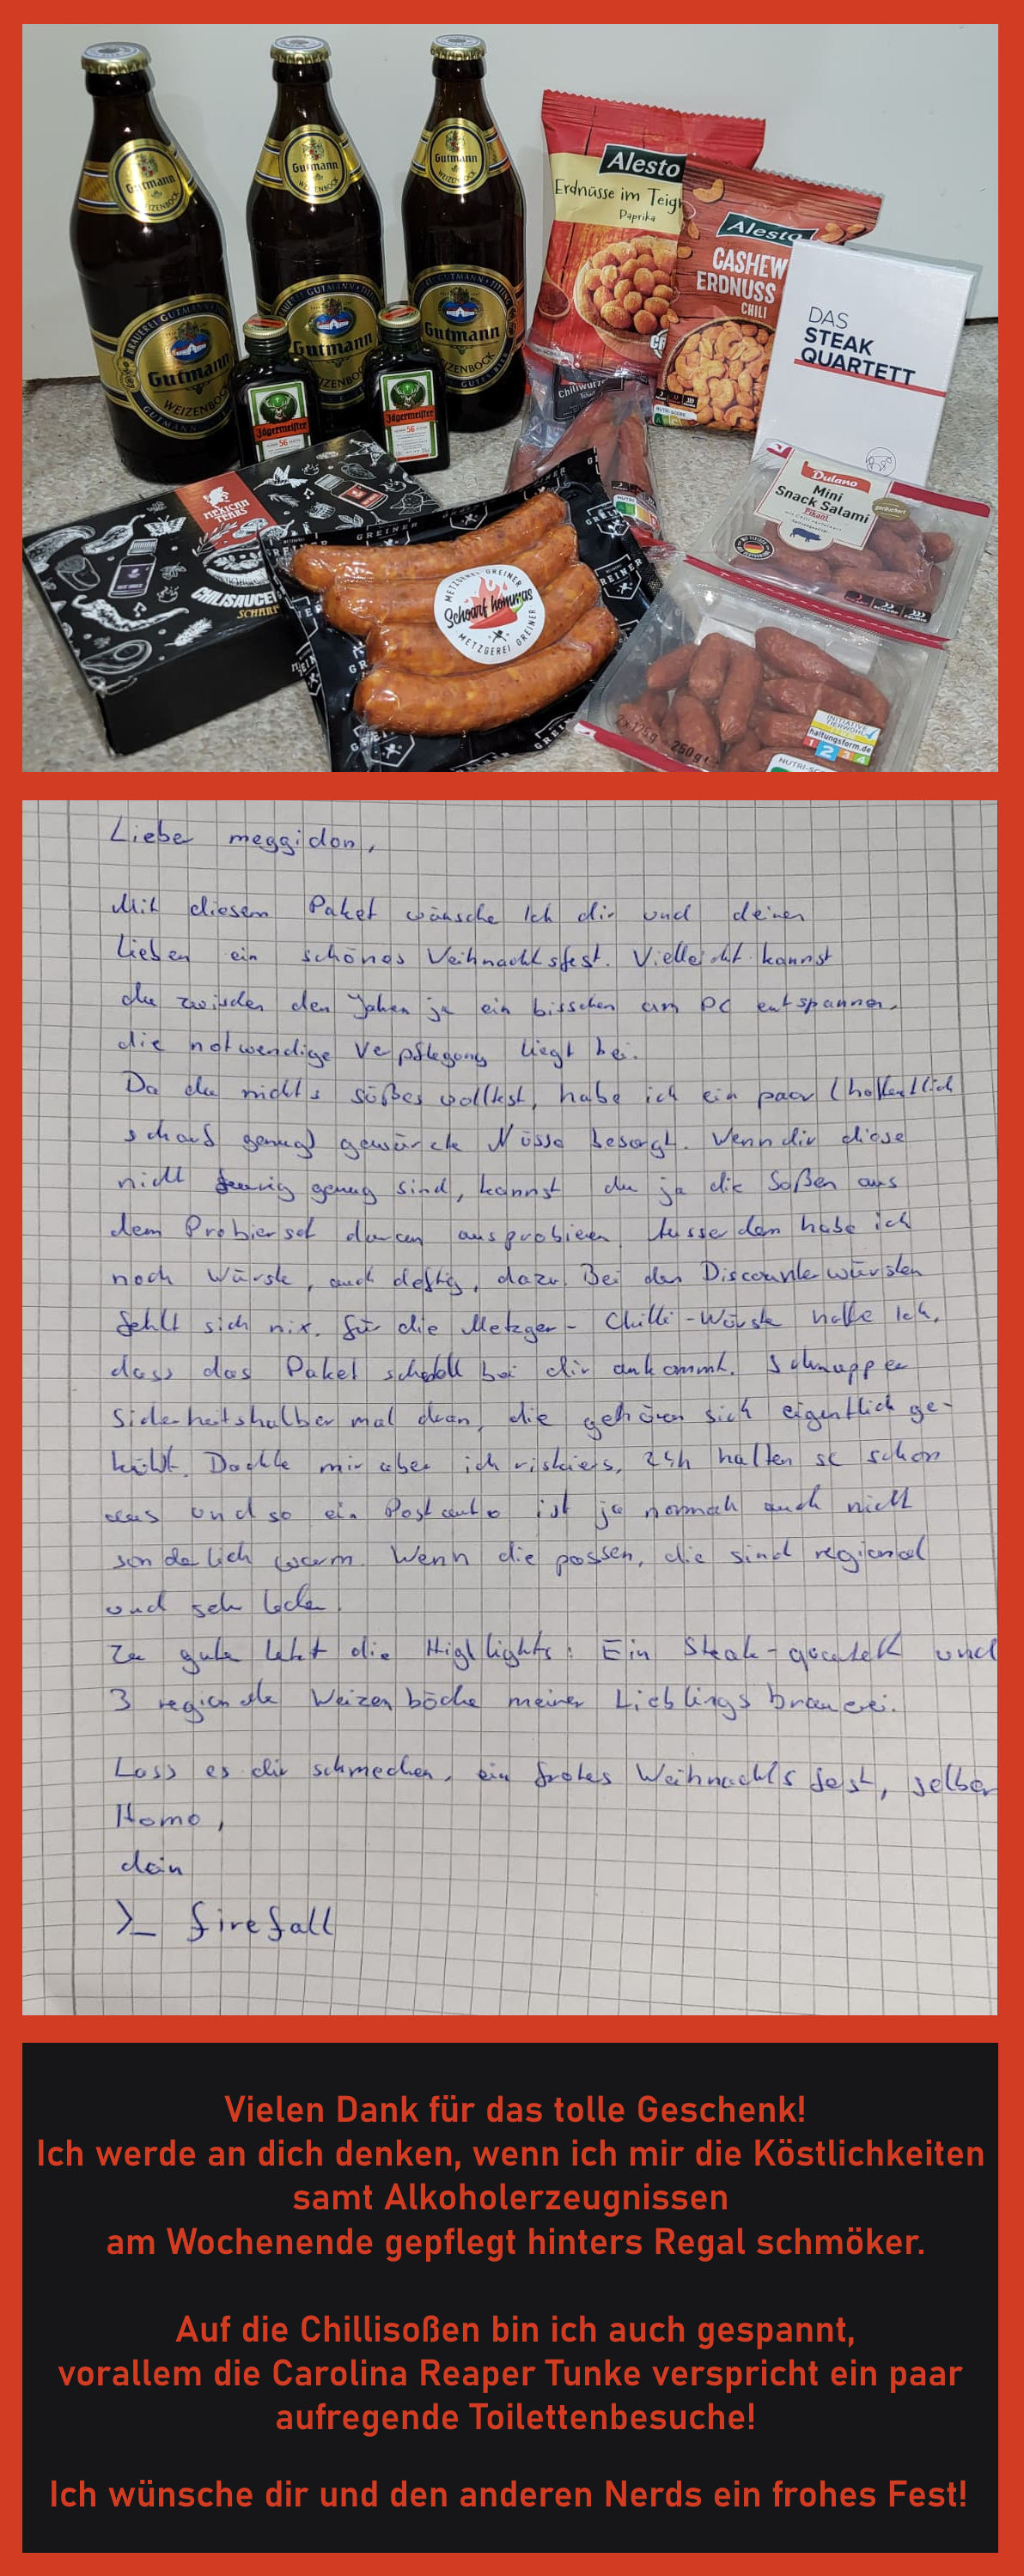 Gutmann
WEIZENBOCK
Gutmann
WEIZENBOCK
Gutmann
WEIZENBOCK
BRAUEREI GUTMANN TITTING
Gutmann
WEIZENBOCK
Gutmann
WEIZENBOCK
Gutmann
WEIZENBOCK
Jägermeister
56
Jägermeister
56
Alesto
Erdnüsse im Teig
Paprika
Alesto
CASHEW
ERDNUSS
CHILI
DAS
STEAK
QUARTETT
Chiliwurz
MEXICAN
TEARS
CHILISAUCE
SCHARF
GREINER
METZGEREI GREINER
Schoarf hommas
METZGEREI GREINER
Dulano
Mini
Snack Salami
Pikant
geräuchert
2x125g 250g
INITIATIVE
TIERWOHL
haltungsform.de
1 2 3 4
NUTRI-SC
Lieber meggidon,
Mit diesem Paket wünsche Ich dir und deinen
Lieben ein schönes Weihnachtsfest. Vielleicht kannst
du zwischen den Jahren ja ein bisschen am PC entspannen,
die notwendige Verpflegung liegt bei.
Da du nichts süßes wolltest, habe ich ein paar (hoffentlich
scharf genug) gewürzte Nüsse besorgt. Wenn dir diese
nicht feurig genug sind, kannst du ja die Soßen aus
dem Probierset daran ausprobieren. Ausserdem habe ich
noch Würste, auch deftig, dazu. Bei den Discounterwürsten
fehlt sich nix, für die Metzger-Chilli-Würste hoffe Ich,
dass das Paket schnell bei dir ankommt. Schnupper
Sicherheitshalber mal dran, die gehören sich eigentlich ge-
kühlt. Dachte mir aber ich riskiers, 24h halten se schon
aus und so ein Postauto ist ja normal auch nicht
sonderlich warm. Wenn die passen, die sind regional
und sehr lecker.
Zu guter letzt die Highlights: Ein Steak-quartett und
3 regionale Weizenböcke meiner Lieblingsbrauerei.
Lass es dir schmecken, ein frohes Weihnachtsfest, selber
Homo,
dein
>_ firefall
Vielen Dank für das tolle Geschenk!
Ich werde an dich denken, wenn ich mir die Köstlichkeiten
samt Alkoholerzeugnissen
am Wochenende gepflegt hinters Regal schmöker.
Auf die Chillisoßen bin ich auch gespannt,
vorallem die Carolina Reaper Tunke verspricht ein paar
aufregende Toilettenbesuche!
Ich wünsche dir und den anderen Nerds ein frohes Fest!